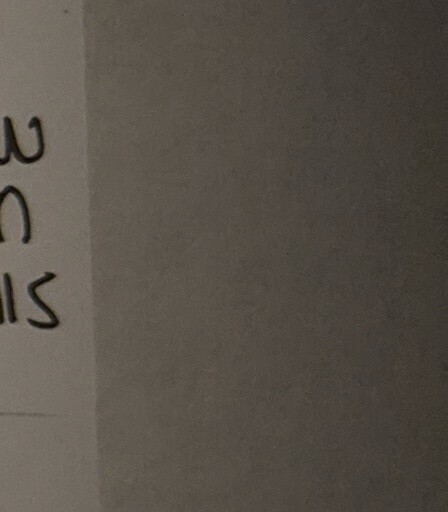 w
n
lls